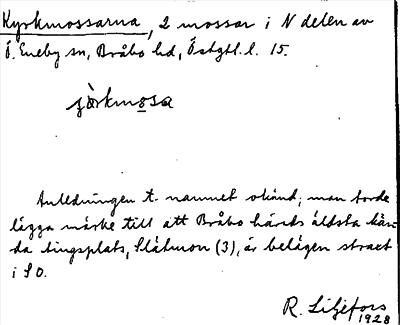 Kyrkmossarna, 2 mossar i N delen av
Ö. Eneby sn, Bråbo hd, Östgtl. l. 15.
jòrkmosa
Anledningen t. namnet okänd; man torde
lägga märke till att Bråbo härads äldsta kän-
da tingsplats, Slåtmon (3), är belägen straxt
i SO.
R. Liljefors
1928